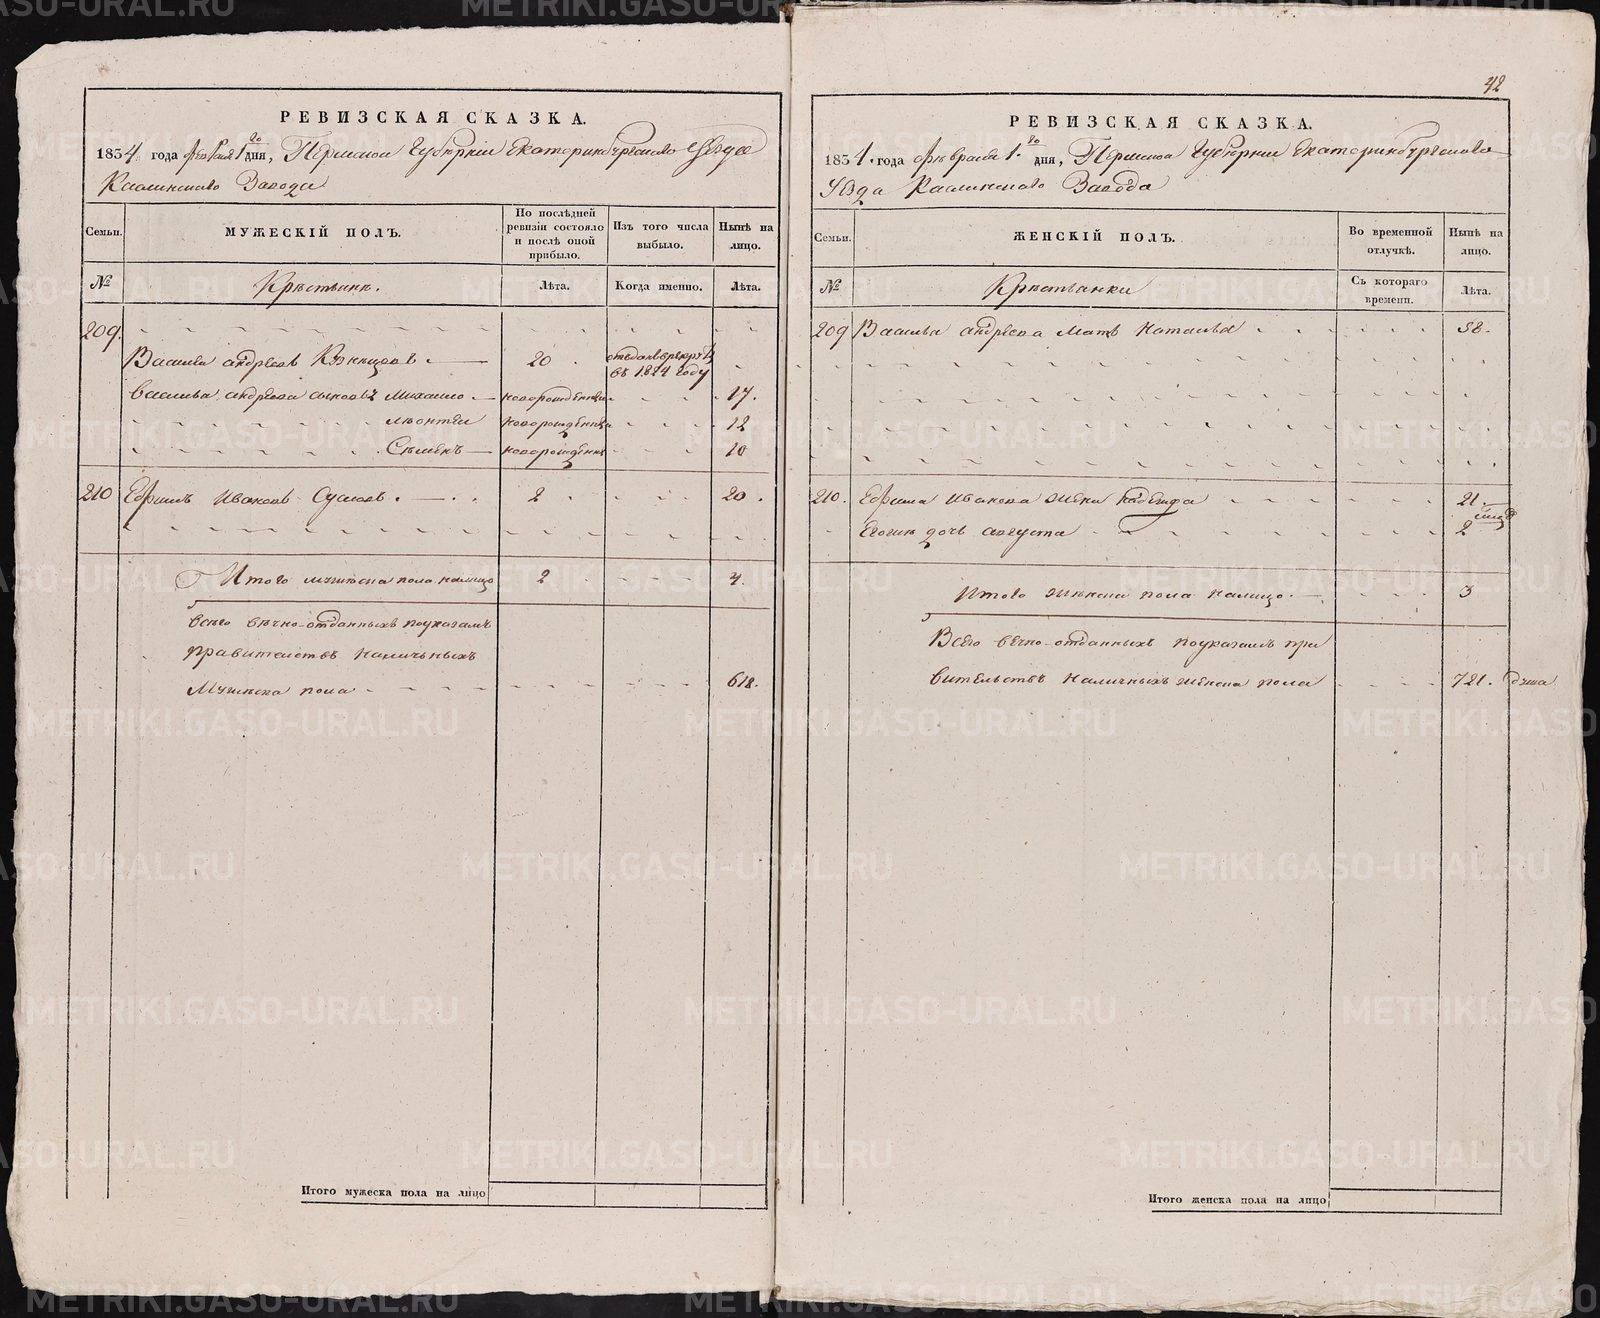 РЕВИЗСКАЯ СКАЗКА.
1834 года февраля 1го дня, Пермской Губернии Екатеринбургскаго Уезда
Каслинскаго Завода
Семьи.
МУЖЕСКІЙ ПОЛЪ.
По послѣдней ревизіи состояло и послѣ оной прибыло.
Изъ того числа выбыло.
Нынѣ на лицо.
№
Крестьяне.
Лѣта.
Когда именно.
Лѣта.
209.
Василей Андреевъ 20 отданъ врекруты въ 1824 году
Василья Андреева сыновья Михайло новорожденный 17.
Леонтей новорожденный 12
Семенъ новорожденный 10
210 Ефимъ Ивановъ Сусловъ. 2 20.
Итого мужеска пола налицо 2 4.
Всего вѣчно-отданныхъ поуказамъ
правительствъ наличныхъ
мужеска пола 618.
Итого мужеска пола на лицо
42
РЕВИЗСКАЯ СКАЗКА.
1834. года февраля 1.го дня, Пермской Губерніи Екатеринбургскаго
Уѣзда Каслинскаго Завода
Семьи.
ЖЕНСКІЙ ПОЛЪ.
Во временной отлучкѣ.
Нынѣ на лицо.
№
Крестьянки
Съ котораго времени.
Лѣта.
209 Василья Андреева мать Наталья 58.
210. Ефима Иванова жена Надежда 21.
Егожъ дочь Августа 2
Итого женска пола налицо. 3
Всего вечно-отданныхъ поуказамъ пра
вительствъ наличныхъ женска пола 721. душа
Итого женска пола на лицо
METRIKI.GASO-URAL.RU